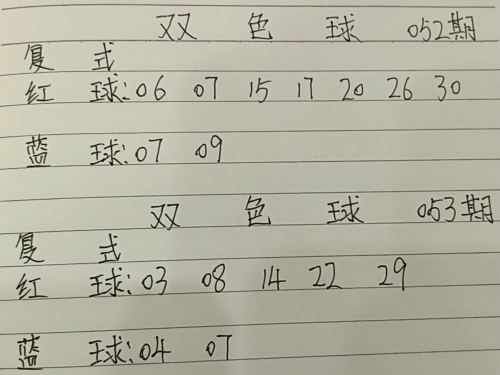 双 色 球 052期
复 式
红 球:06 07 15 17 20 26 30
蓝 球:07 09
双 色 球 053期
复 式
红 球:03 08 14 22 29
蓝 球:04 07